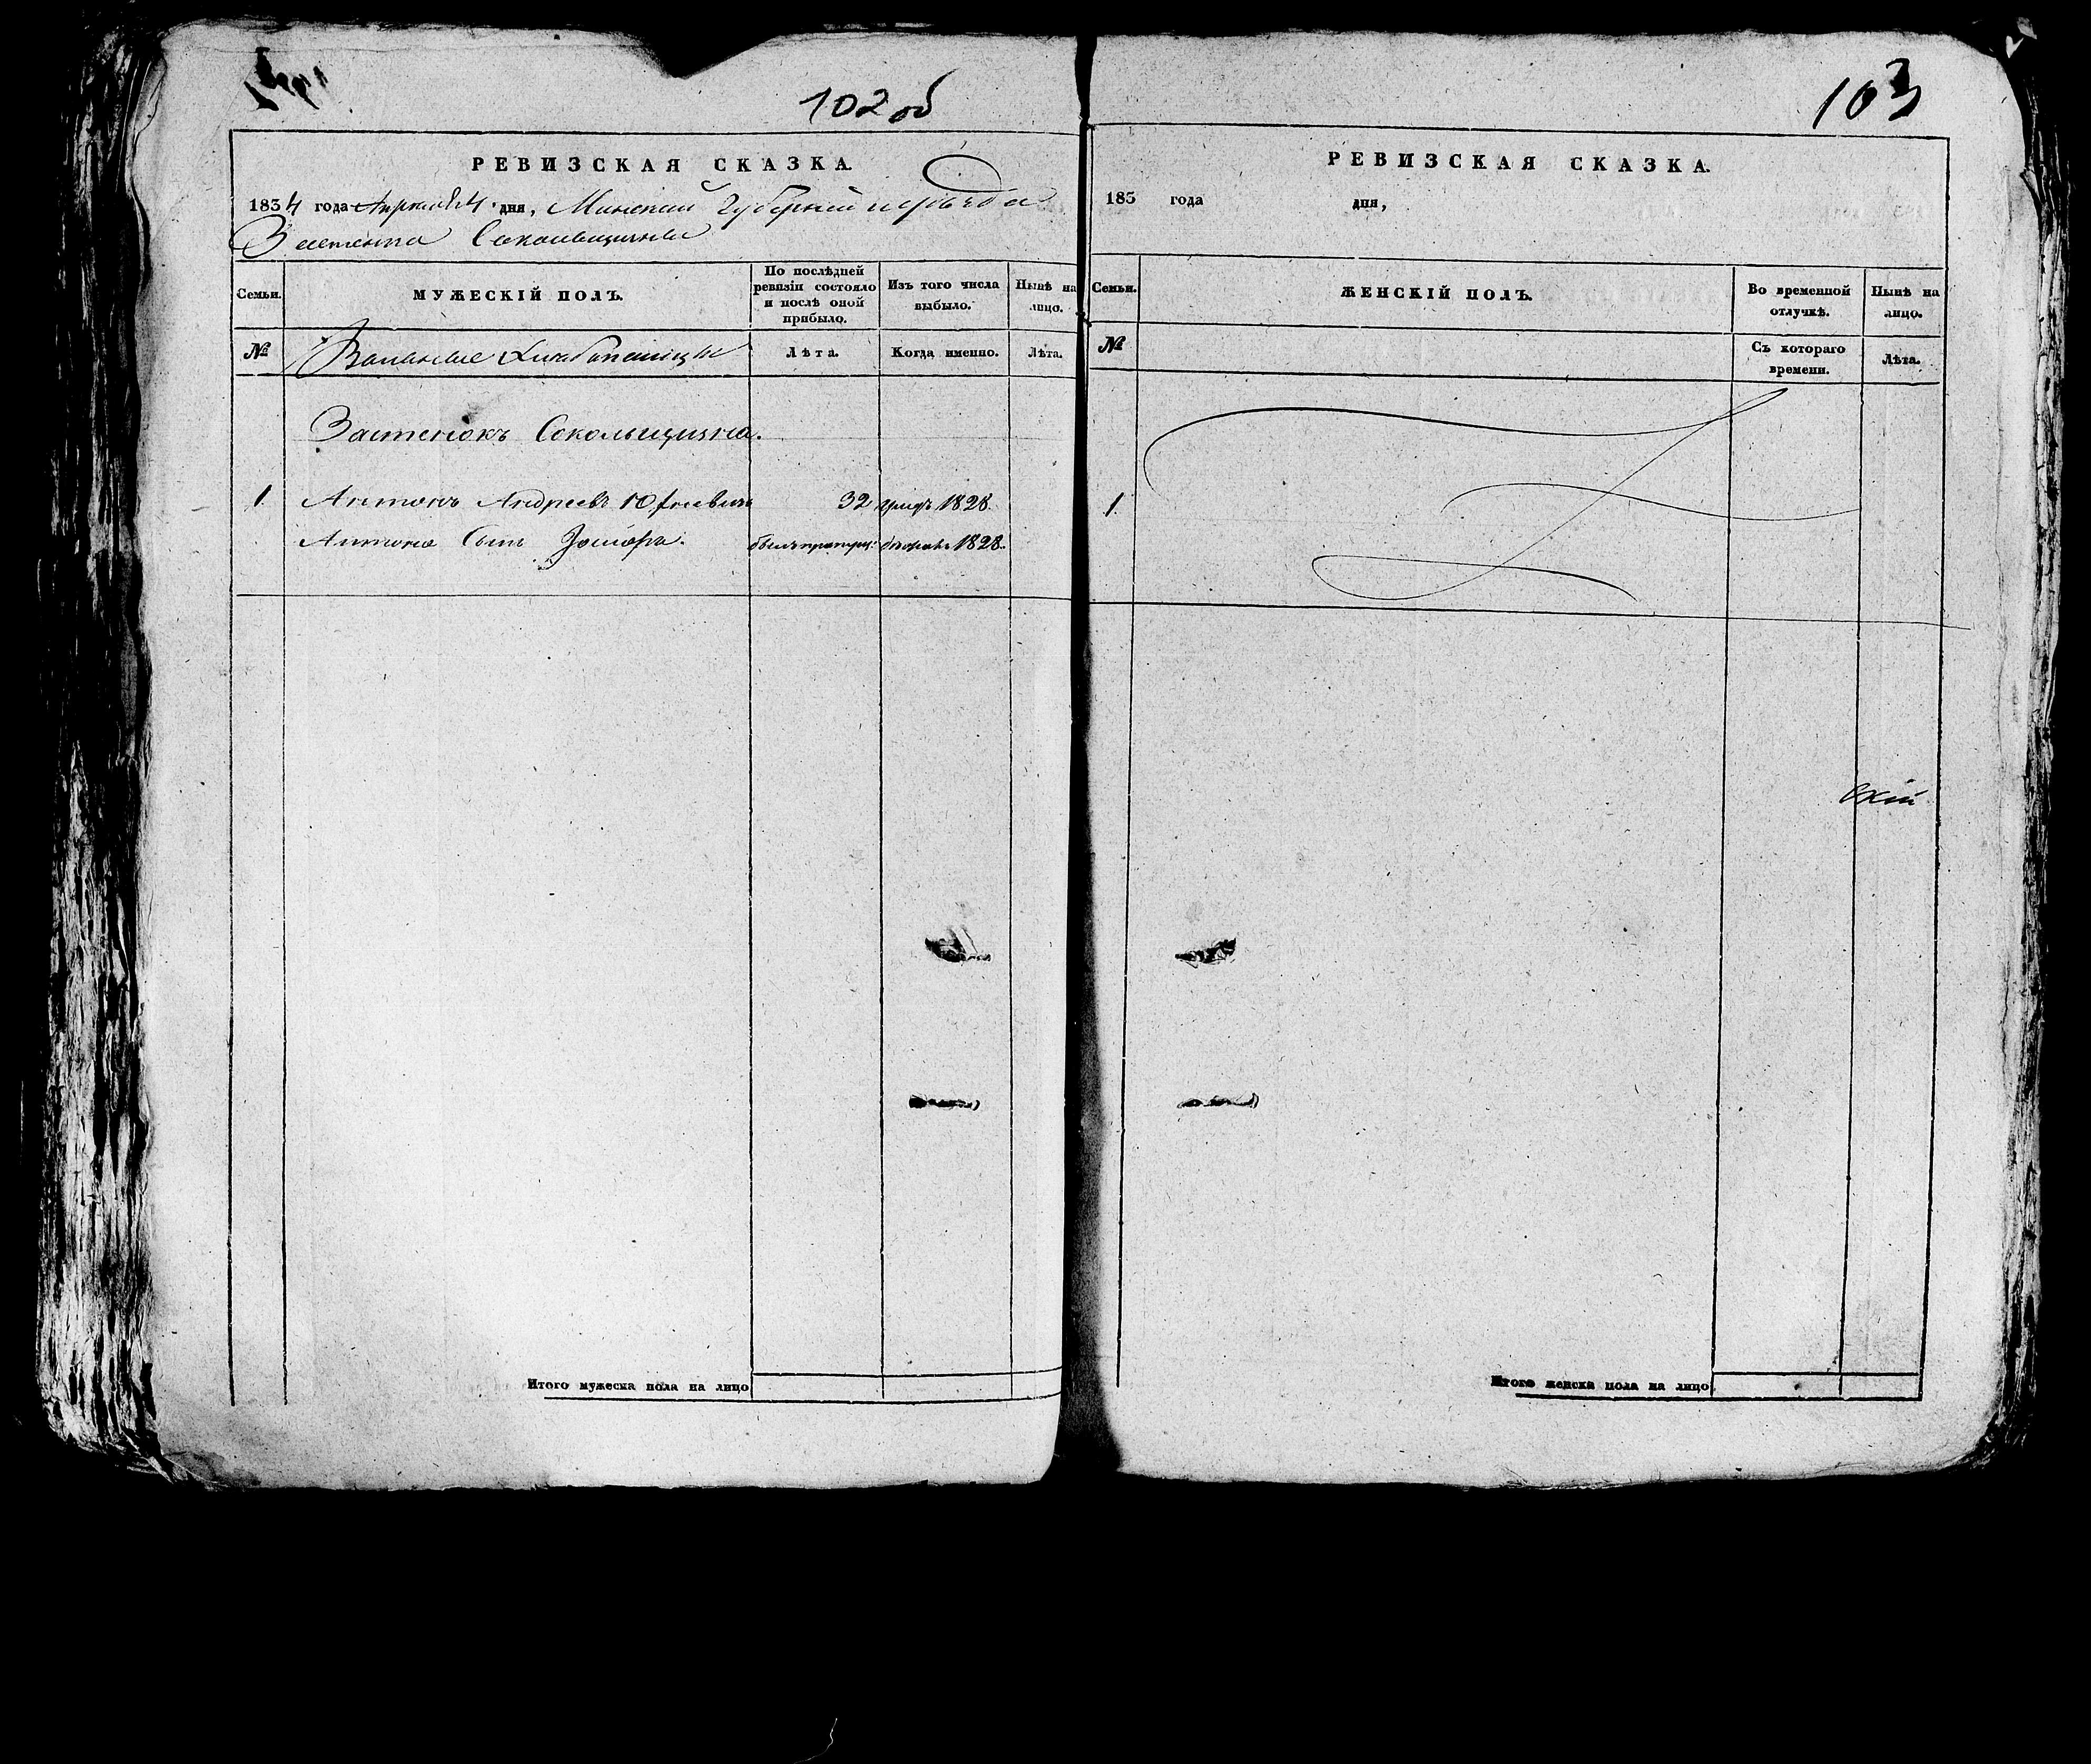 102 об
РЕВИЗСКАЯ СКАЗКА.
1834 года Апреля 4 дня, Минской Губернии и уезда
Застенка Сокольщизны
Семьи.
МУЖЕСКІЙ ПОЛЪ.
По послѣдней ревизіи состояло и послѣ оной прибыло.
Изъ того числа выбыло.
Нынѣ на лицо.
№
Вольные
Лѣта.
Когда именно.
Лѣта.
Застенокъ Сокольщизна.
1. Антонъ Андреевъ 32 1828
Антона Сынъ 1828.
Итого мужеска пола на лицо
103
РЕВИЗСКАЯ СКАЗКА.
183 года дня,
Семьи.
ЖЕНСКІЙ ПОЛЪ.
Во временной отлучкѣ.
Нынѣ на лицо.
№
Съ котораго времени.
Лѣта.
1.
скій
Итого женска пола на лицо